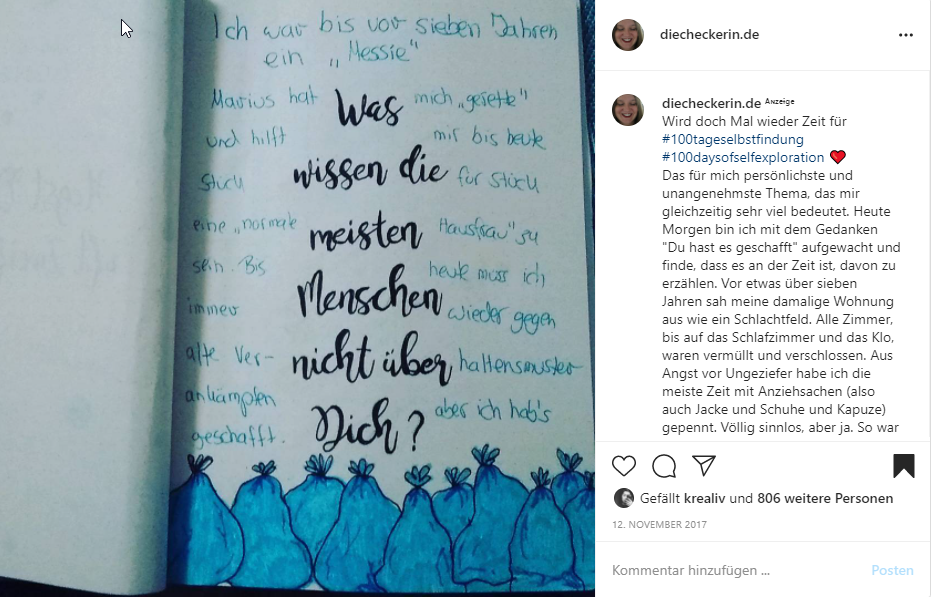 Ich war bis vor sieben Jahren
ein „Messie“
Marius hat Was mich „gerette“
und hilft mir bis heute
Stück wissen die für Stück
eine „normale meisten Hausfrau“ zu
sein. Bis Menschen heute muss ich
immer wieder gegen
alte Ver- nicht über haltensmuster
ankämpfen Dich? aber ich hab's
geschafft.
diecheckerin.de
diecheckerin.de Anzeige
Wird doch Mal wieder Zeit für
#100tageselbstfindung
#100daysofselfexploration
Das für mich persönlichste und
unangenehmste Thema, das mir
gleichzeitig sehr viel bedeutet. Heute
Morgen bin ich mit dem Gedanken
"Du hast es geschafft" aufgewacht und
finde, dass es an der Zeit ist, davon zu
erzählen. Vor etwas über sieben
Jahren sah meine damalige Wohnung
aus wie ein Schlachtfeld. Alle Zimmer,
bis auf das Schlafzimmer und das Klo,
waren vermüllt und verschlossen. Aus
Angst vor Ungeziefer habe ich die
meiste Zeit mit Anziehsachen (also
auch Jacke und Schuhe und Kapuze)
gepennt. Völlig sinnlos, aber ja. So war
Gefällt krealiv und 806 weitere Personen
12. NOVEMBER 2017
Kommentar hinzufügen ...
Posten